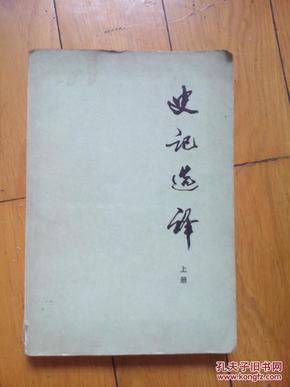 史记选译
上册
孔夫子旧书网